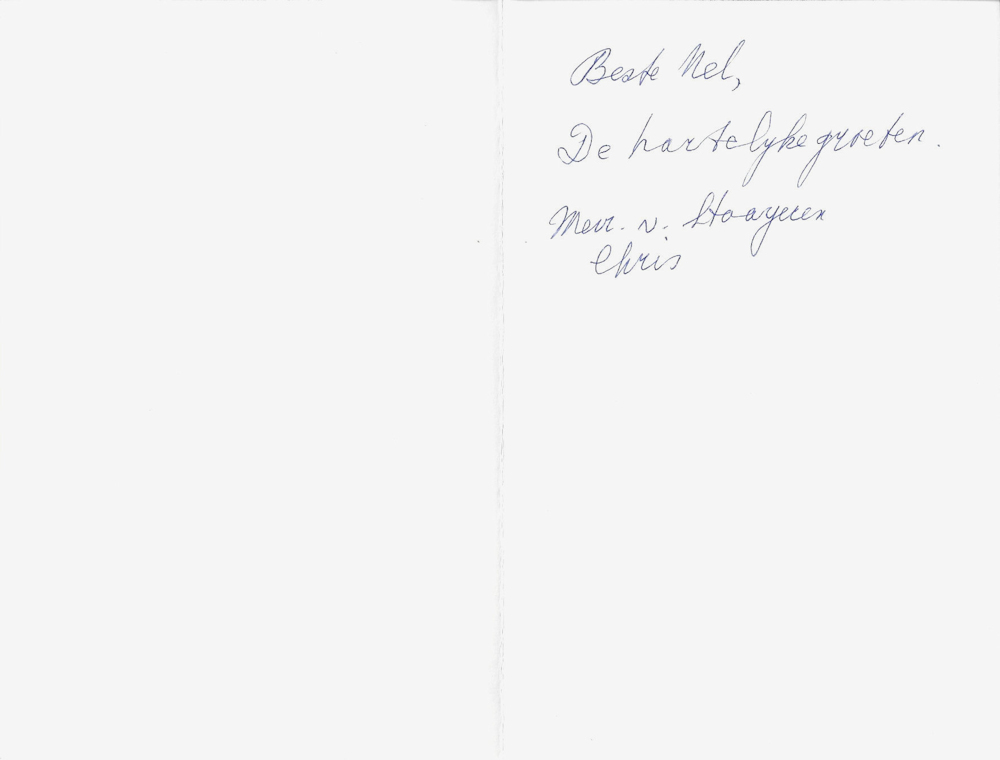 Beste Nel,
De hartelyke groeten.
Mevr. v.
Chris